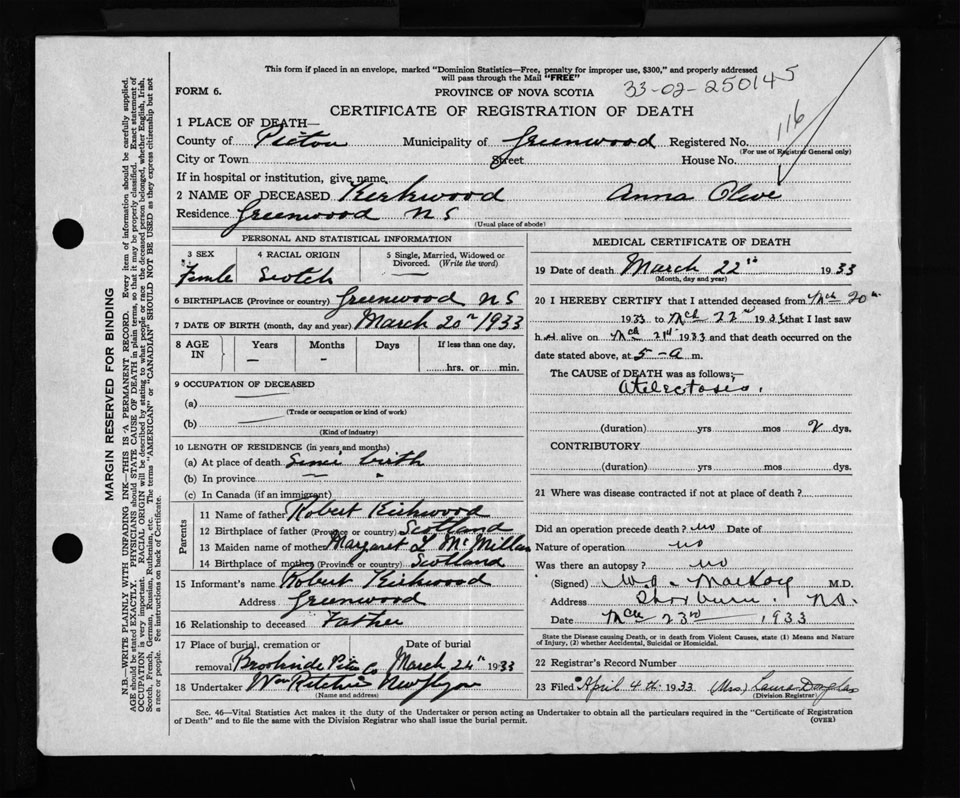 This form if placed in an envelope, marked "Dominion Statistics—Free, penalty for improper use, $300," and properly addressed
will pass through the Mail "FREE"
FORM 6.
PROVINCE OF NOVA SCOTIA
33-02-250145
CERTIFICATE OF REGISTRATION OF DEATH
1 PLACE OF DEATH—
County of Pictou Municipality of Greenwood Registered No. 116
(For use of Registrar General only)
City or Town Street House No.
If in hospital or institution, give name
2 NAME OF DECEASED Kirkwood Anna Olive
Residence Greenwood N S
(Usual place of abode)
PERSONAL AND STATISTICAL INFORMATION
3 SEX 4 RACIAL ORIGIN 5 Single, Married, Widowed or
Divorced. (Write the word)
Femle Scotch
6 BIRTHPLACE (Province or country) Greenwood N S
7 DATE OF BIRTH (month, day and year) March 20th 1933
8 AGE IN Years Months Days If less than one day,
hrs. or min.
9 OCCUPATION OF DECEASED
(a)
(Trade or occupation or kind of work)
(b)
(Kind of industry)
10 LENGTH OF RESIDENCE (in years and months)
(a) At place of death Since birth
(b) In province
(c) In Canada (if an immigrant)
Parents
11 Name of father Robert Kirkwood
12 Birthplace of father (Province or country) Scotland
13 Maiden name of mother Margaret L McMillan
14 Birthplace of mother (Province or country) Scotland
15 Informant's name Robert Kirkwood
Address Greenwood
16 Relationship to deceased Father
17 Place of burial, cremation or Date of burial
removal Brookside Pictou Co March 24th 1933
18 Undertaker Wm Ritchie New Glasgow
(Name and address)
MEDICAL CERTIFICATE OF DEATH
19 Date of death March 22nd 1933
(Month, day and year)
20 I HEREBY CERTIFY that I attended deceased from Mch 20th
1933 to Mch 22nd 1933 that I last saw
her alive on Mch 21st 1933 and that death occurred on the
date stated above, at 5-a m.
The CAUSE of DEATH was as follows:—
Atelectasis.
(duration) yrs mos 2 dys.
CONTRIBUTORY
(duration) yrs. mos. dys.
21 Where was disease contracted if not at place of death?
Did an operation precede death? no Date of
Nature of operation no
Was there an autopsy? no
(Signed) MacKay M.D.
Address Thorburn, N.S.
Date Mch 23rd 1933
State the Disease causing Death, or in death from Violent Causes, state (1) Means and Nature
of Injury, (2) whether Accidental, Suicidal or Homicidal.
22 Registrar's Record Number
23 Filed April 4th 1933 (Mrs) Laura Douglas
(Division Registrar)
Sec. 46—Vital Statistics Act makes it the duty of the Undertaker or person acting as Undertaker to obtain all the particulars required in the "Certificate of Registration
of Death" and to file the same with the Division Registrar who shall issue the burial permit.
(OVER)
MARGIN RESERVED FOR BINDING
N.B.—WRITE PLAINLY WITH UNFADING INK—THIS IS A PERMANENT RECORD. Every item of information should be carefully supplied.
AGE should be stated EXACTLY. PHYSICIANS should STATE CAUSE OF DEATH in plain terms, so that it may be properly classified. Exact statement of
OCCUPATION is very important. RACIAL ORIGIN will be described by stating to what people or race the deceased person belonged, whether English, Irish,
Scotch, French, German, Russian, Ruthenian, etc. The terms "AMERICAN" or "CANADIAN" SHOULD NOT BE USED as they express citizenship but not
a race or people. See instructions on back of Certificate.